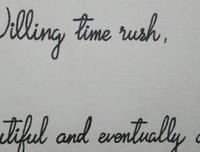 Willing time rush,
utiful and eventually